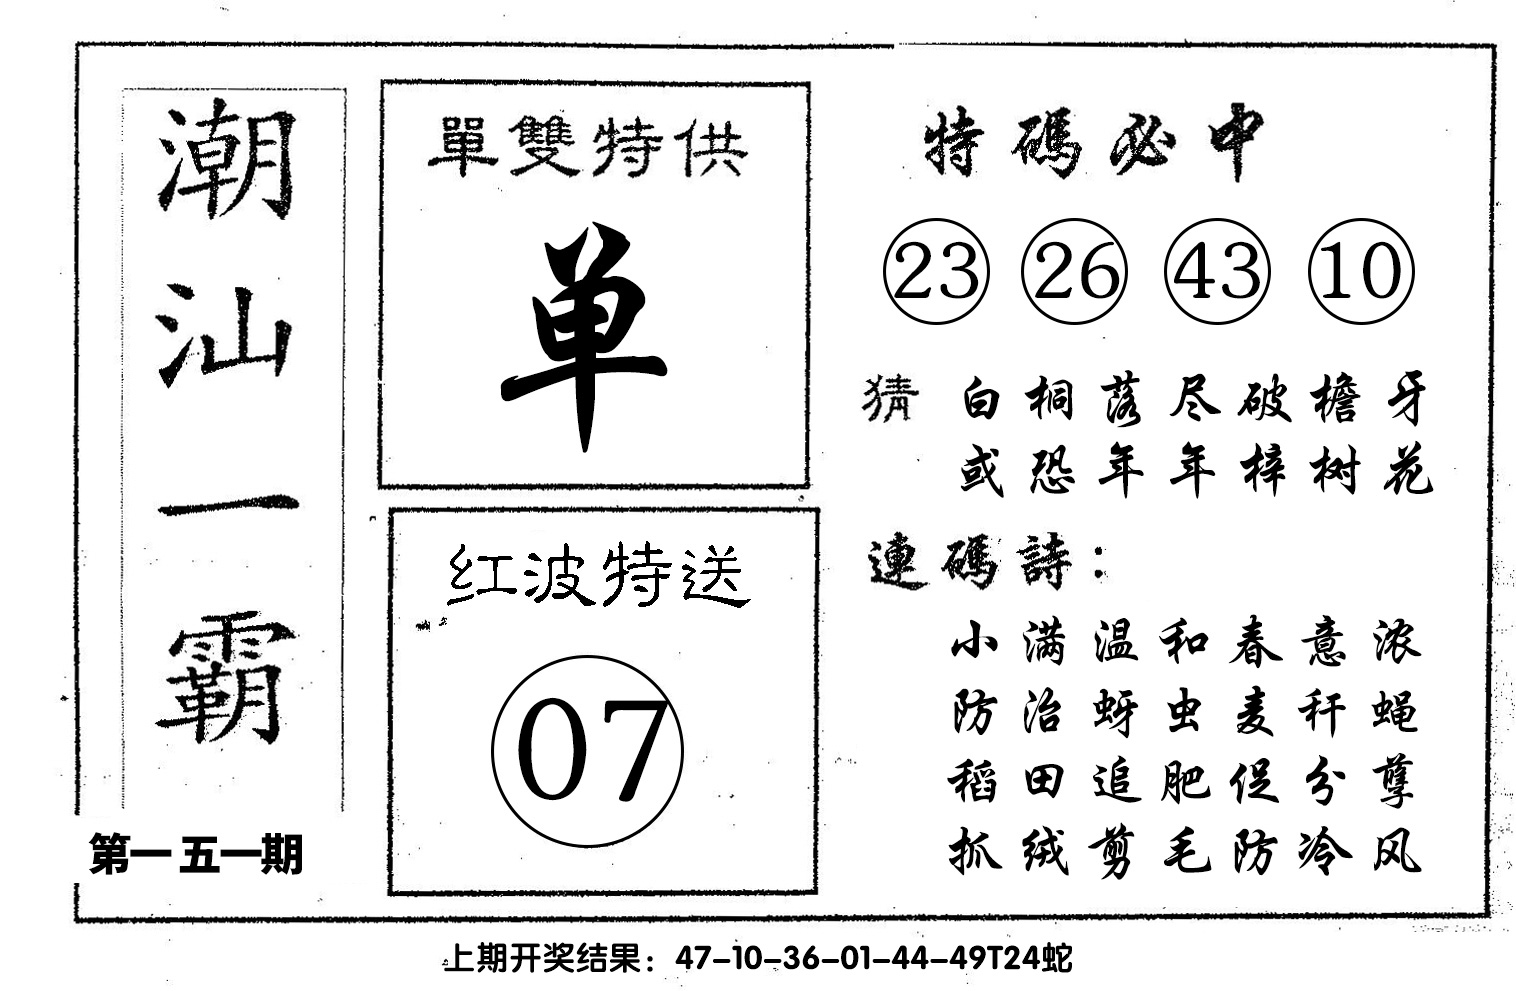 潮汕一霸
第一五一期
單雙特供
单
红波特送
07
特碼必中
23 26 43 10
猜 白桐落尽破檐牙
或恐年年梓树花
連碼詩：
小满温和春意浓
防治蚜虫麦秆蝇
稻田追肥促分孽
抓绒剪毛防冷风
上期开奖结果：47-10-36-01-44-49T24蛇